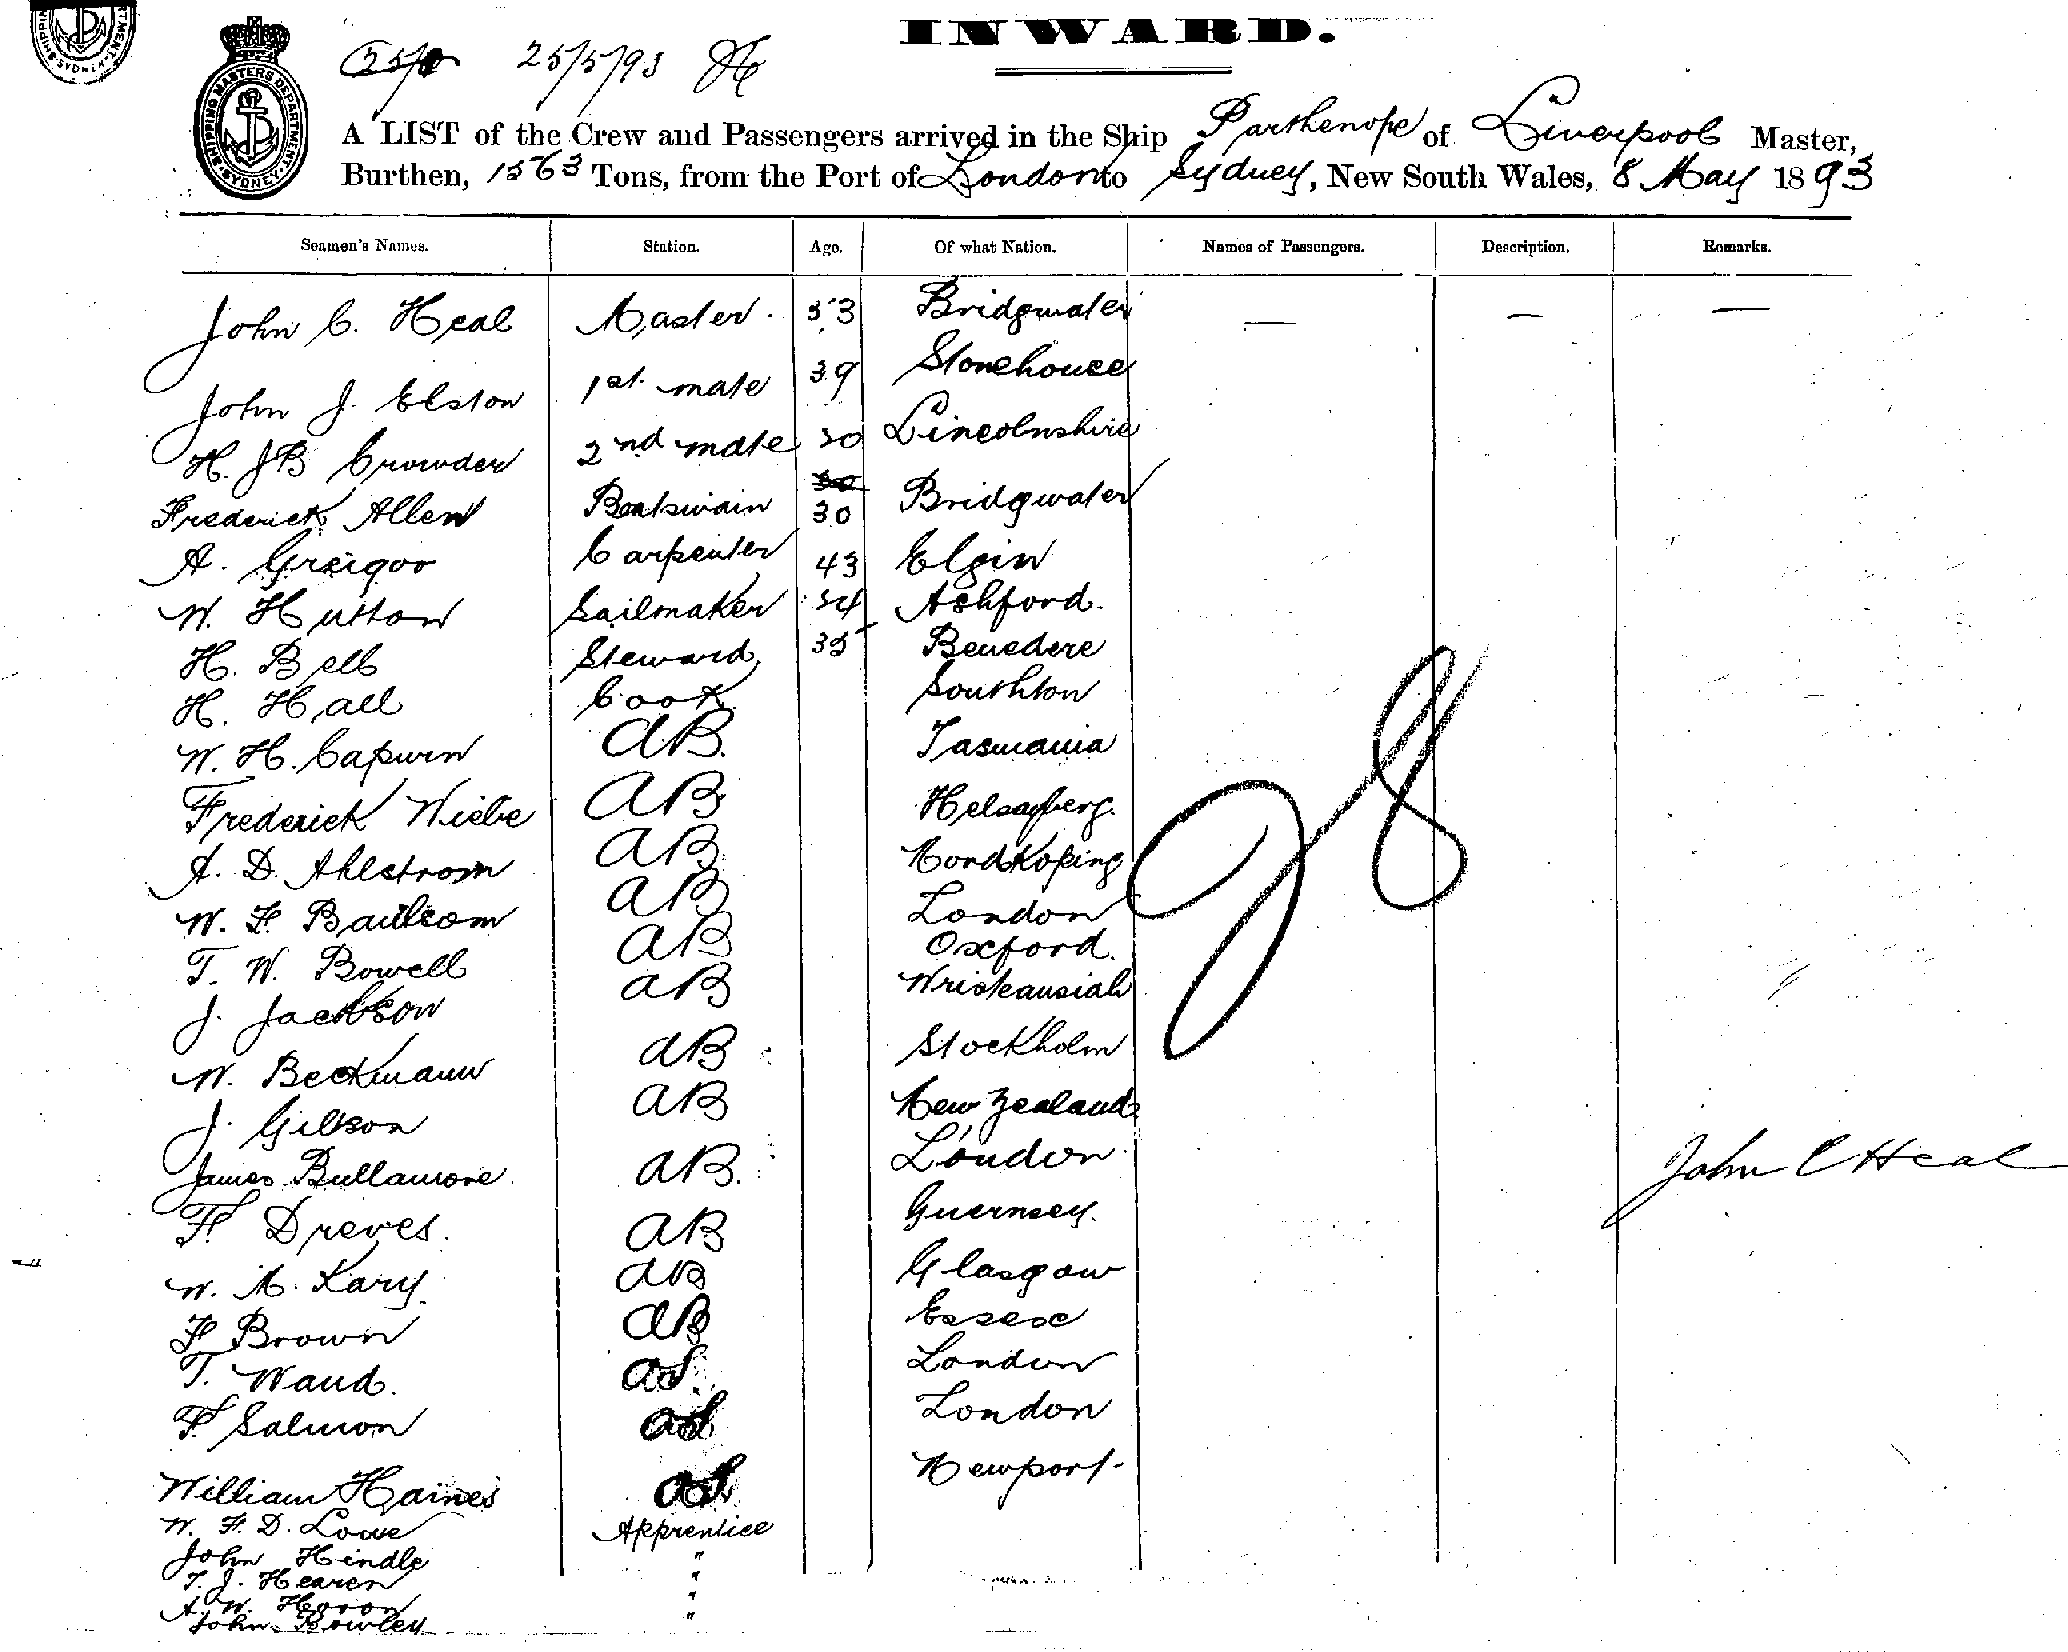 INWARD.
25/5/93
A LIST of the Crew and Passengers arrived in the Ship Parthenope of Liverpool Master,
Burthen, 1563 Tons, from the Port of London to Sydney, New South Wales, 8 May 1893
SHIPPING MASTERS DEPARTMENT SYDNEY
Seamen's Names. Station. Age. Of what Nation. Names of Passengers. Description. Remarks.
John C. Heal Master. 53 Bridgwater — — —
John J. Elston 1st. mate 39 Stonehouse
H. JB Crowder 2nd mate 30 Lincolnshire
Frederick Allen Boatswain 30 Bridgwater
A. Greigoo Carpenter 43 Elgin
W. Hutton Sailmaker 54 Ashford.
H. Bell Steward, 35 Benedere
H. Hall Cook Southton
W. H. Capwin AB. Tasmania
Frederick Wiebe AB
A. D. Ahlstrom AB Nordkoping
W. F Baulcom AB London
T. W. Bowell AB Oxford.
J. Jackson AB
W. Beckmann AB Stockholm
J. Gibson AB New Zealand
James Bullamore AB. London
F Dreves. AB Guernsey.
W. M. Kary. AB Glasgow
F Brown AB Essex
T. Waud. OS. London
F. Salmon OS London
William Haines OS Newport
W. F. D. Lowe Apprentice
John Hindle "
T. J. Hearen "
A. W. Heron "
John Rowley "
John C Heal
28